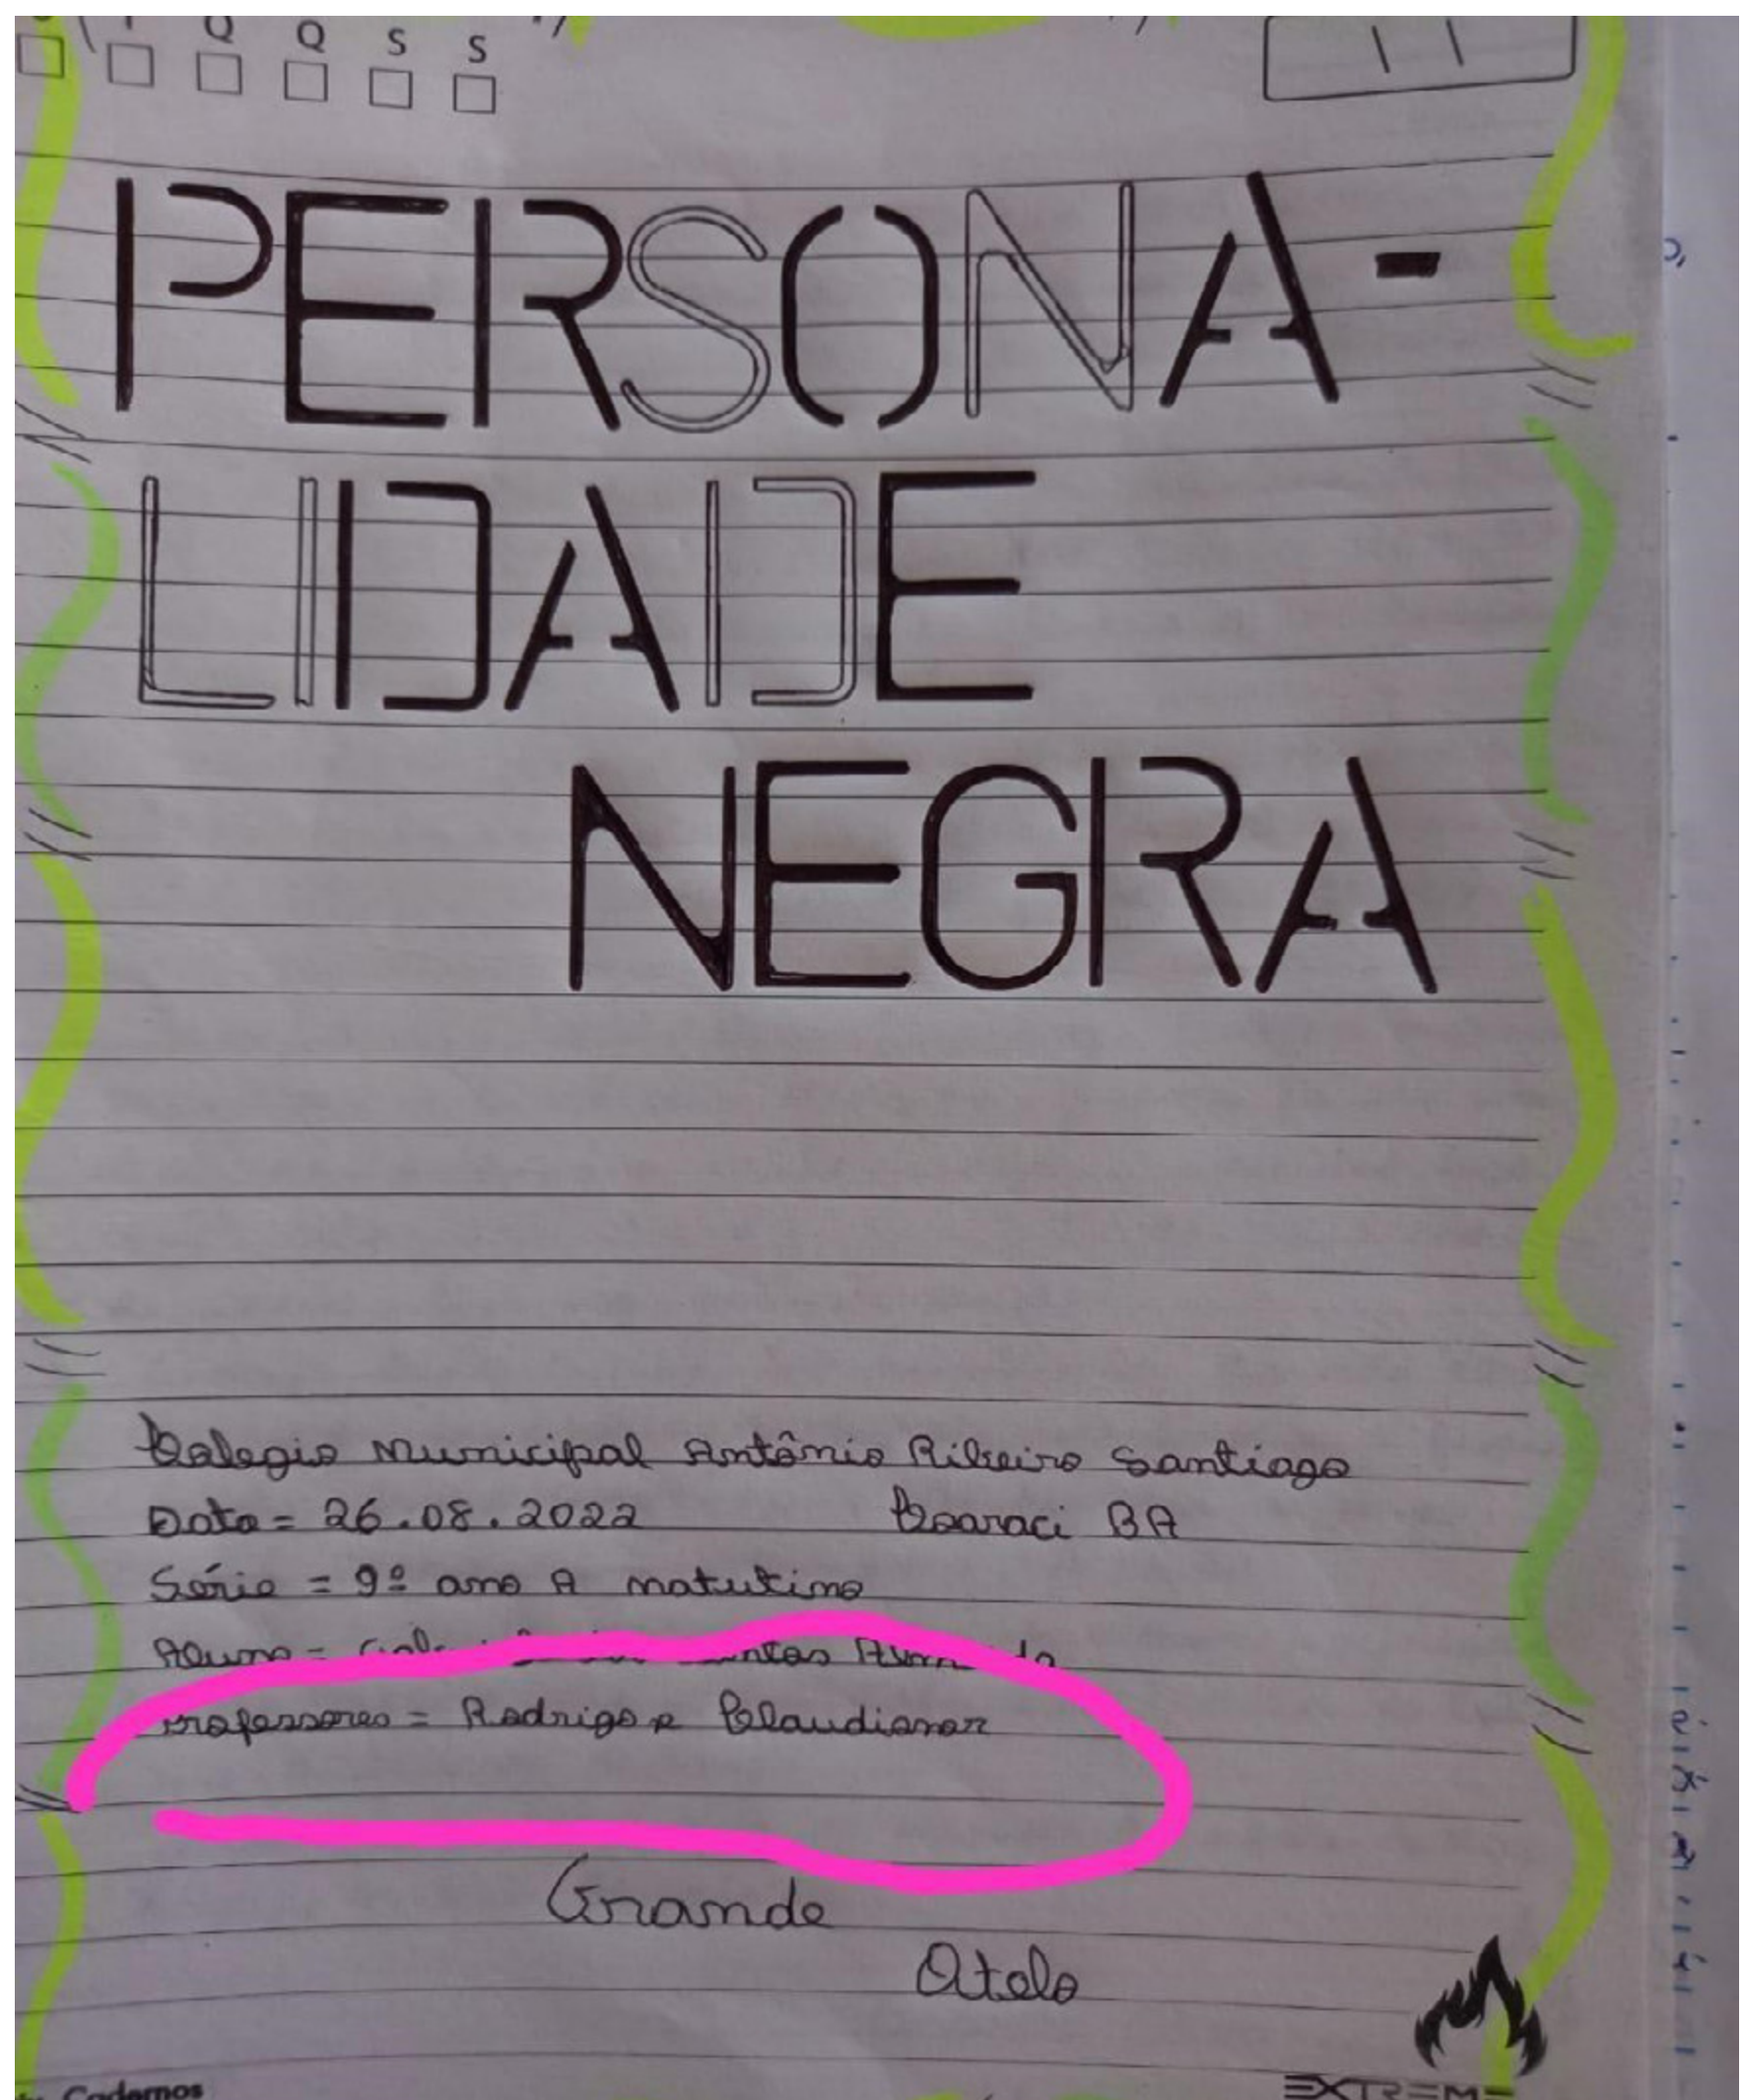 Q Q S S
PERSONA-
LIDADE
NEGRA
Colegio Municipal Antônio Ribeiro Santiago
Data = 26.08.2022 Coaraci BA
Série = 9º ano A matutino
Aluno =
Professores = Rodrigo e Claudionor
Grande
Otelo
Cadernos
EXTREME